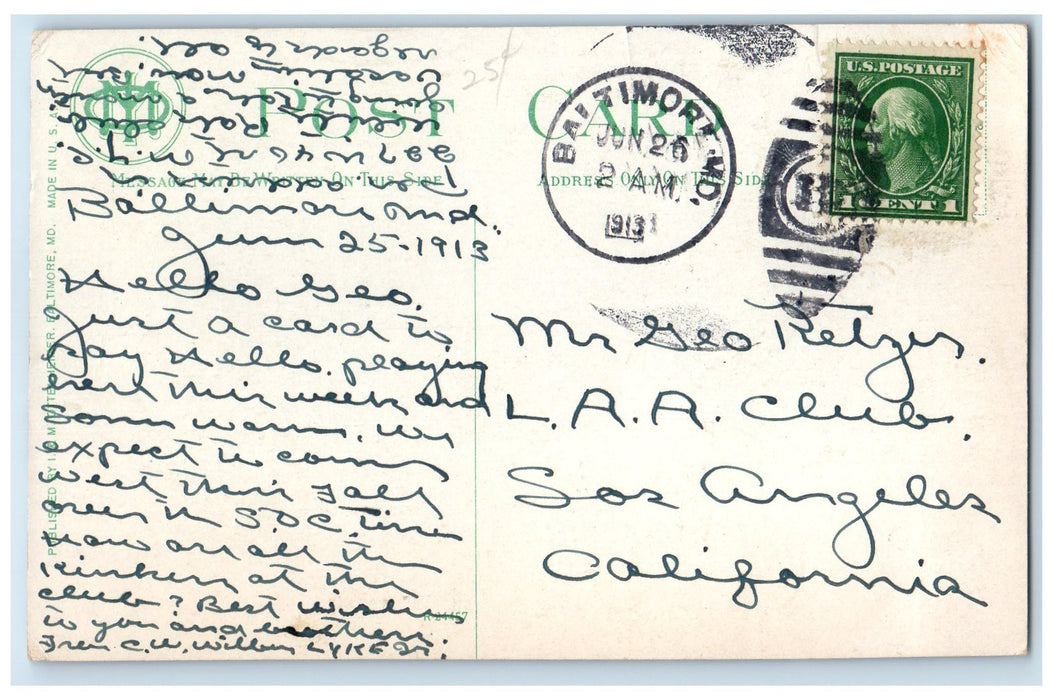 25¢
POST CARD
MESSAGE MAY BE WRITTEN ON THIS SIDE
ADDRESS ONLY ON THIS SIDE
BALTIMORE, MD.
JUN 26
2 AM.
1913
U.S. POSTAGE
1 CENT 1
Baltimore Md.
June 25-1913
Hello Geo.
Just a card to
say Hello. playing
here this week and
some warm. we
expect to come
west this Fall
over the S & C Time
how are all the
Kinkers at the
club? Best wishes
to you and brothers
C. W. Wilbur LYKENS.
regards to all
Mr Geo Retzer.
L.A.A. Club.
Los Angeles
California
R-24457
PUBLISHED BY I. & M. OTTENHEIMER. BALTIMORE, MD. MADE IN U.S.A.